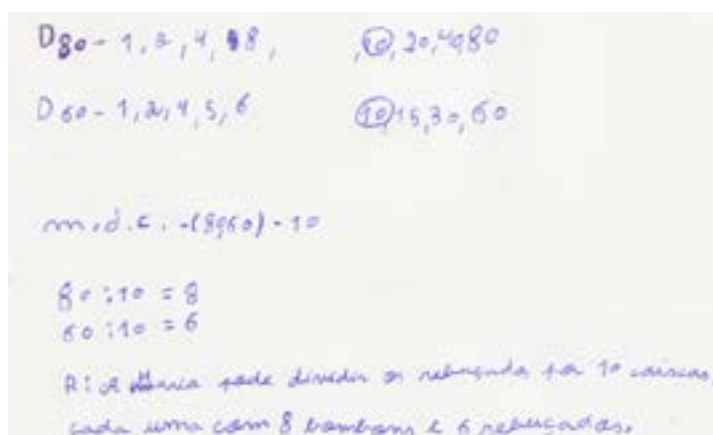 D80 - 1, 2, 4, 8, , 10, 20, 40, 80
D 60 - 1, 2, 4, 5, 6 10, 15, 30, 60
m.d.c. - (80,60) - 10
80 : 10 = 8
60 : 10 = 6
R: A Maria pode dividir os rebuçados por 10 caixas,
cada uma com 8 bombons e 6 rebuçados.